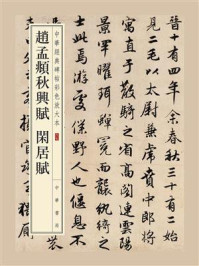 中華經典碑帖彩色放大本
趙孟頫秋興賦 閑居賦
中華書局
晉十有四年余春秋三十有二
毛以太尉掾兼虎賁中郎將
直散騎之省高閣連雲陽
景罕曜珥蟬冕而襲紈綺之
士此焉遊處僕野人也偃